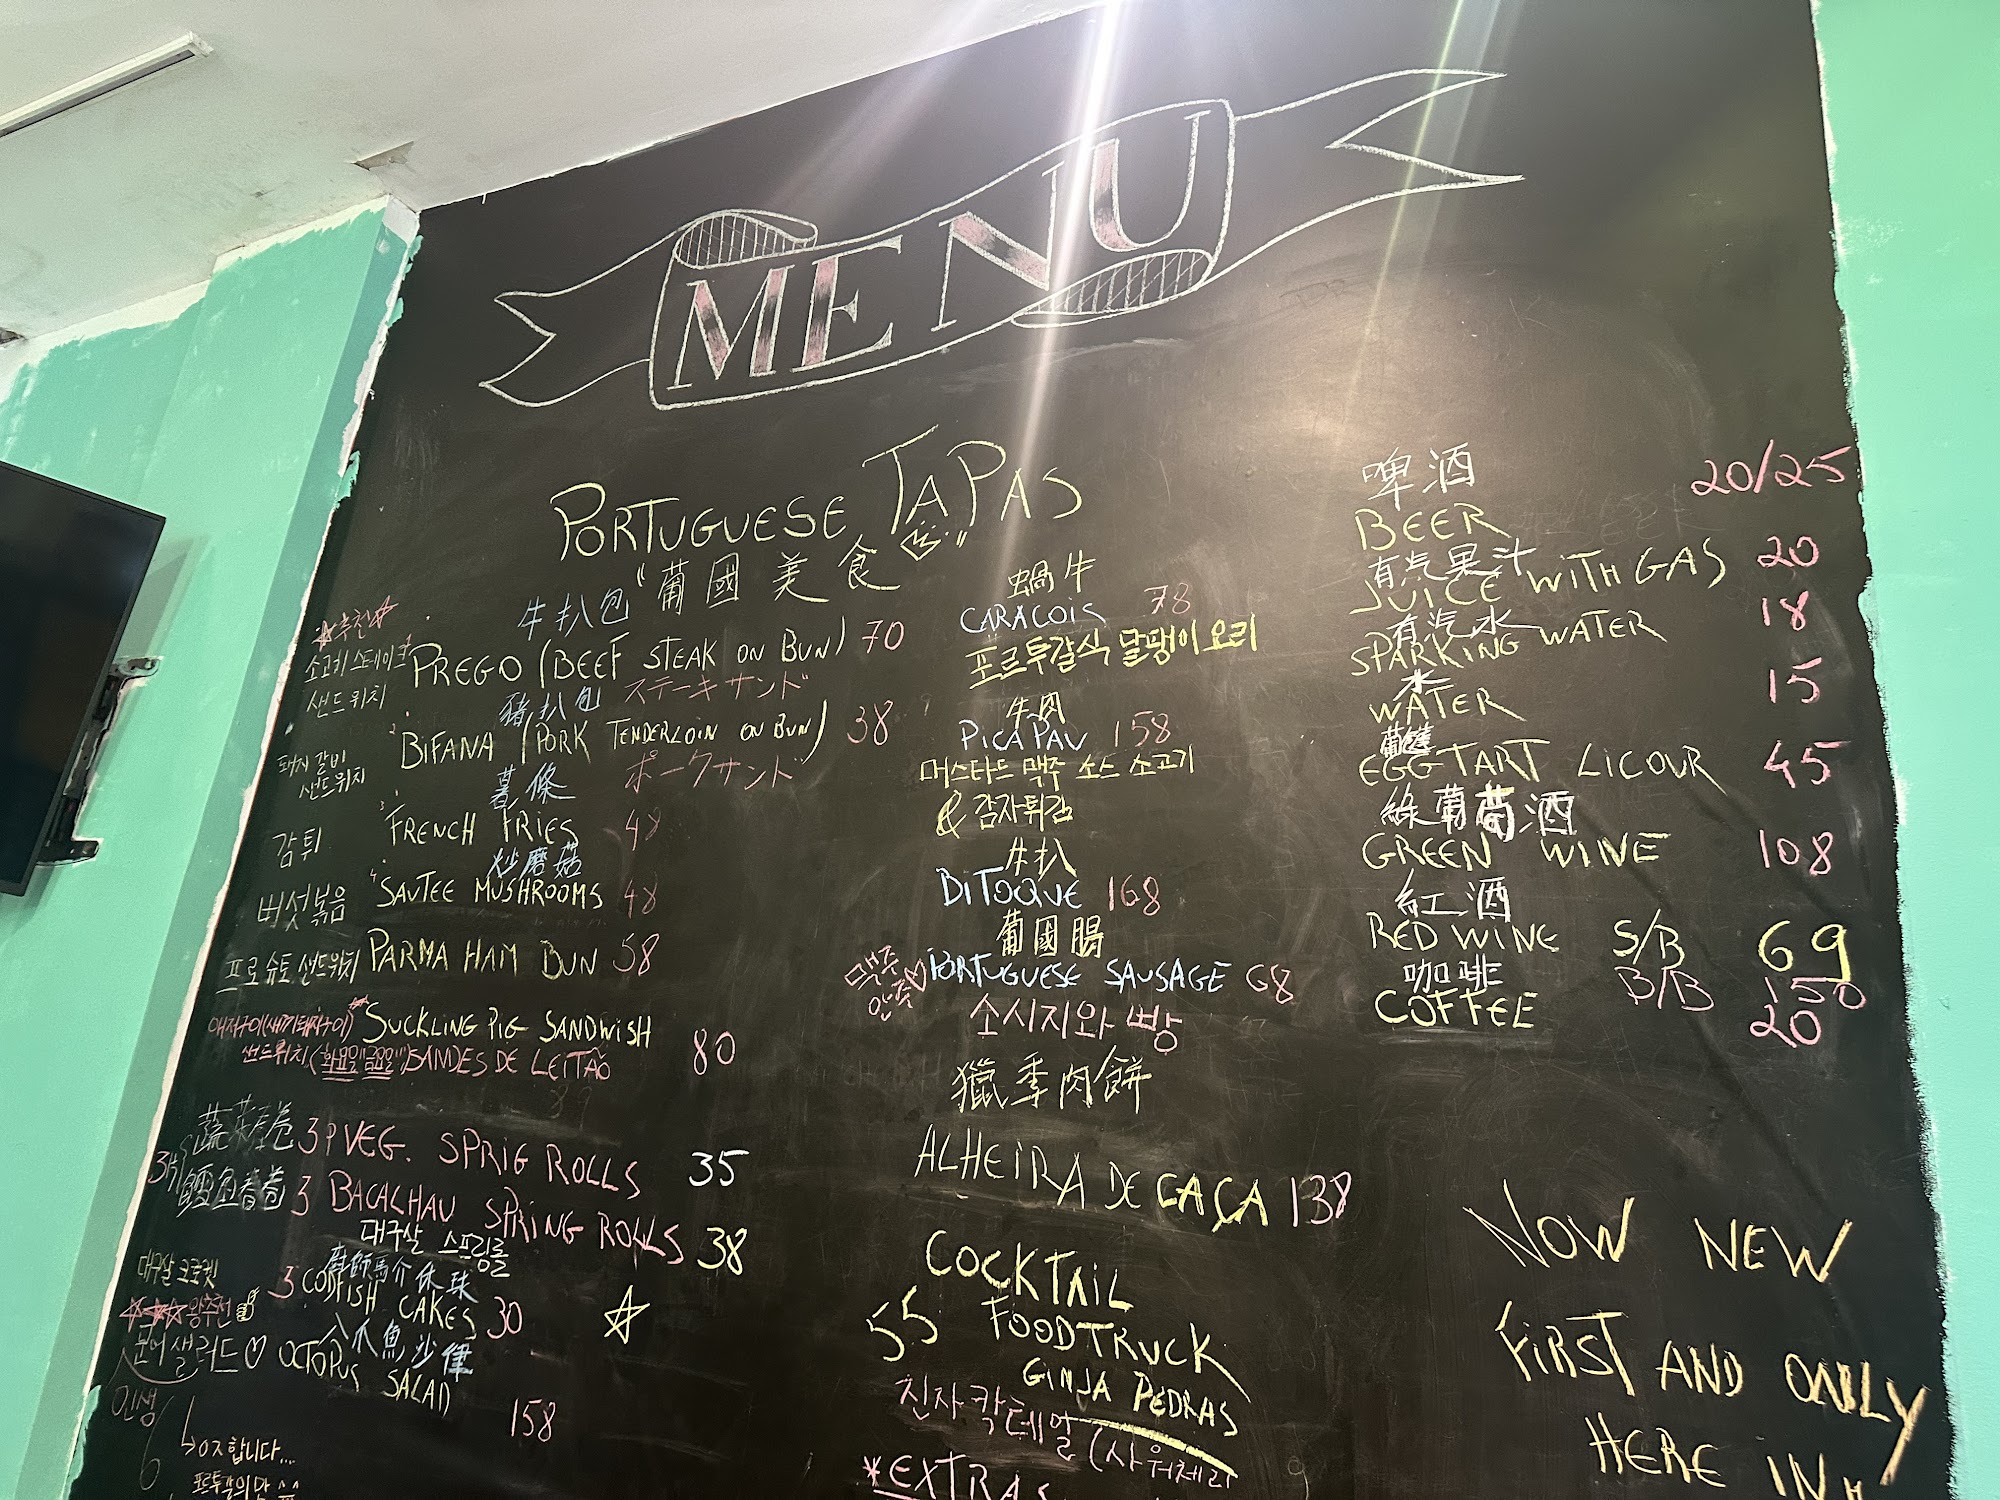 MENU
PORTUGUESE TAPAS
"葡國美食"
☆추천☆
牛扒包
소고기 스테이크
샌드위치
PREGO (BEEF STEAK ON BUN) 70
ステーキサンド
豬扒包
돼지갈비
샌드위치
BIFANA (PORK TENDERLOIN ON BUN) 38
ポークサンド
薯條
감튀
FRENCH FRIES 48
炒磨菇
버섯볶음
SAUTEE MUSHROOMS 48
프로슈토 샌드위치 PARMA HAM BUN 58
애저구이(새끼돼지구이) SUCKLING PIG SANDWISH
샌드위치("화요일""금요일") SANDES DE LEITÃO 80
蔬菜春卷 3P VEG. SPRIG ROLLS 35
3 BACALHAU SPRING ROLLS 38
대구살 스프링롤
대구살 크로켓
廚師馬介休珠
3 CODFISH CAKES 30
☆☆☆왕추천
八爪魚沙律
문어샐러드♡ OCTOPUS SALAD
158
인생
오지합니다...
포르투갈의 맛 ^^
蝸牛
CARACOIS 78
포르투갈식 달팽이요리
牛肉
PICA PAU 158
머스타드 맥주 소스 소고기
& 감자튀김
牛扒
BITOQUE 168
葡國腸
맥주
안주♡
PORTUGUESE SAUSAGE 68
소시지와 빵
獵季肉餅
ALHEIRA DE CAÇA 138
COCKTAIL
55 FOODTRUCK
GINJA PEDRAS
진자 칵테일 (사워체리
*EXTRAS
啤酒
BEER 20/25
有汽果汁
JUICE WITH GAS 20
有汽水
SPARKING WATER 18
水
WATER 15
葡撻
EGGTART LICOUR 45
綠葡萄酒
GREEN WINE 108
紅酒
RED WINE S/B 69
B/B 150
咖啡
COFFEE 20
NOW NEW
FIRST AND ONLY
HERE IN